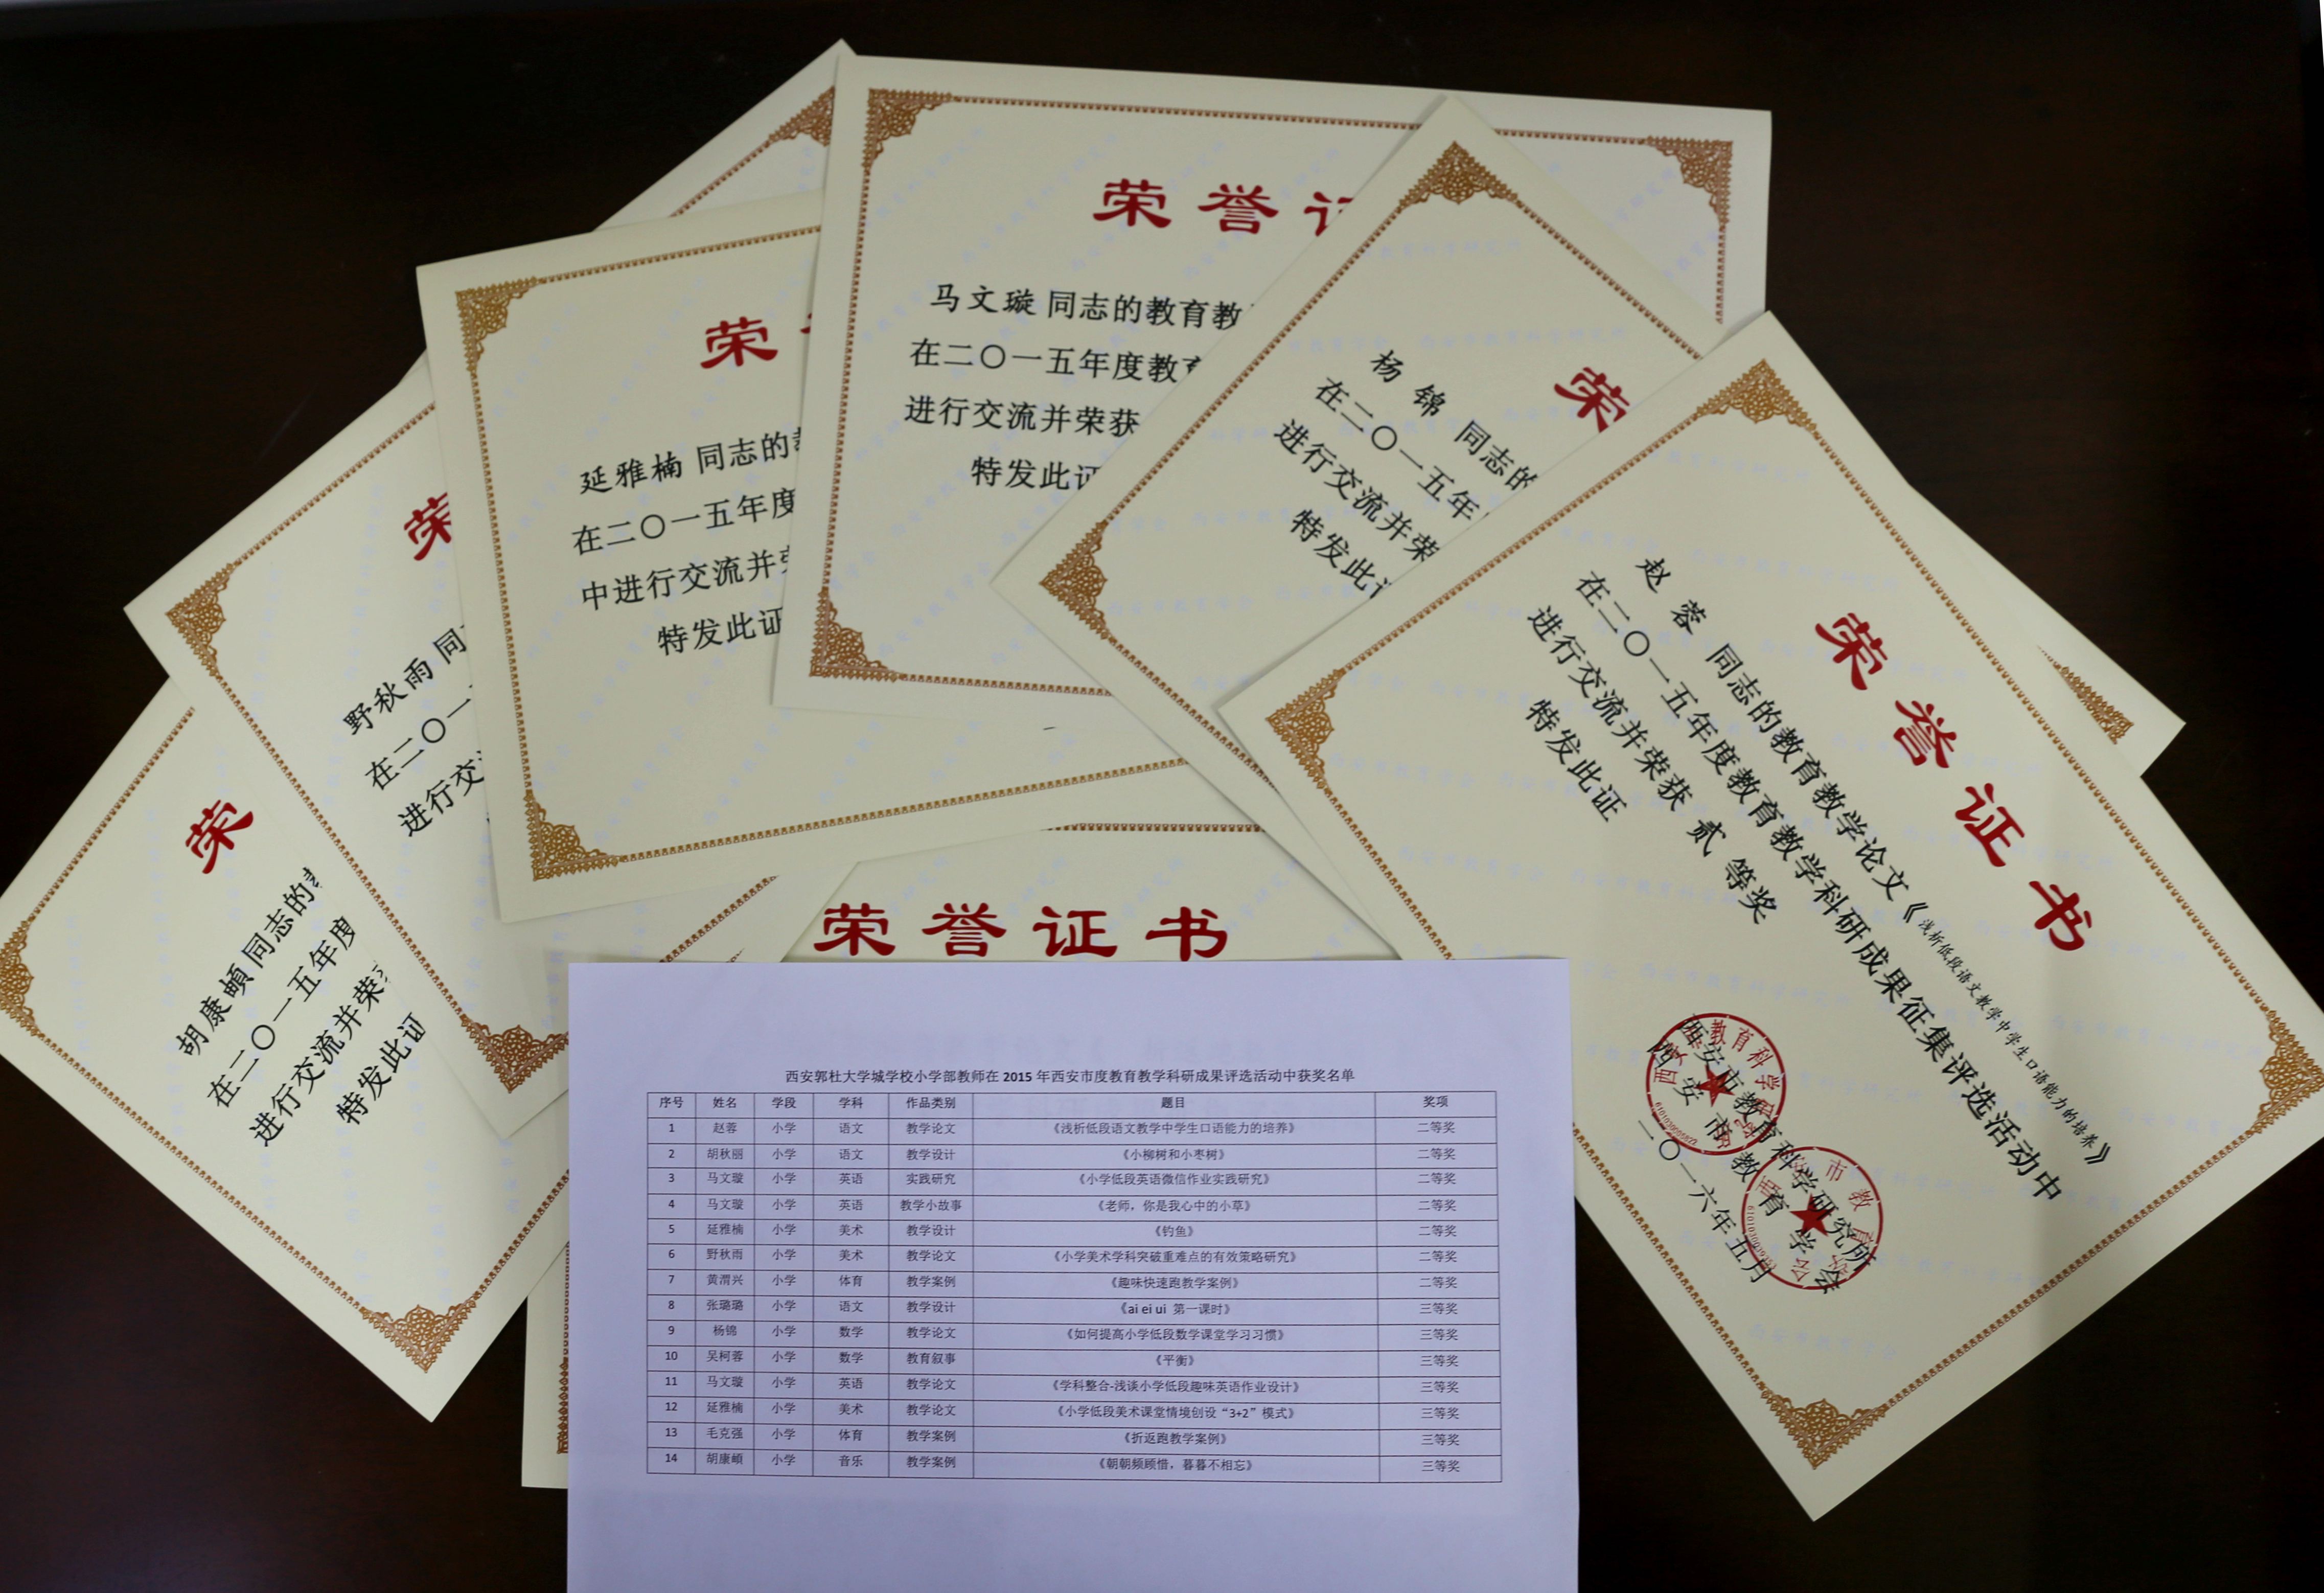 荣誉
马文璇 同志的教育教
在二〇一五年度教育
进行交流并荣获
特发此证
荣
延雅楠 同志的
在二〇一五年度
中进行交流并荣
特发此证
荣
杨锦 同志的
在二〇一五年
进行交流并荣
特发此证
荣
野秋雨 同
在二〇一
进行交
荣
胡康頔同志的
在二〇一五年度
进行交流并荣
特发此证
荣誉证书
赵蓉 同志的教育教学论文《浅析低段语文教学中学生口语能力的培养》
在二〇一五年度教育教学科研成果征集评选活动中
进行交流并荣获 贰 等奖
特发此证
西安市教育科学研究所
西安市教育学会
二〇一六年五月
荣誉证书
西安郭杜大学城学校小学部教师在 2015 年西安市度教育教学科研成果评选活动中获奖名单
序号 姓名 学段 学科 作品类别 题目 奖项
1 赵蓉 小学 语文 教学论文 《浅析低段语文教学中学生口语能力的培养》 二等奖
2 胡秋丽 小学 语文 教学设计 《小柳树和小枣树》 二等奖
3 马文璇 小学 英语 实践研究 《小学低段英语微信作业实践研究》 二等奖
4 马文璇 小学 英语 教学小故事 《老师，你是我心中的小草》 二等奖
5 延雅楠 小学 美术 教学设计 《钓鱼》 二等奖
6 野秋雨 小学 美术 教学论文 《小学美术学科突破重难点的有效策略研究》 二等奖
7 黄渭兴 小学 体育 教学案例 《趣味快速跑教学案例》 二等奖
8 张璐璐 小学 语文 教学设计 《ai ei ui 第一课时》 三等奖
9 杨锦 小学 数学 教学论文 《如何提高小学低段数学课堂学习习惯》 三等奖
10 吴柯蓉 小学 数学 教育叙事 《平衡》 三等奖
11 马文璇 小学 英语 教学论文 《学科整合-浅谈小学低段趣味英语作业设计》 三等奖
12 延雅楠 小学 美术 教学论文 《小学低段美术课堂情境创设“3+2”模式》 三等奖
13 毛克强 小学 体育 教学案例 《折返跑教学案例》 三等奖
14 胡康頔 小学 音乐 教学案例 《朝朝频顾惜，暮暮不相忘》 三等奖